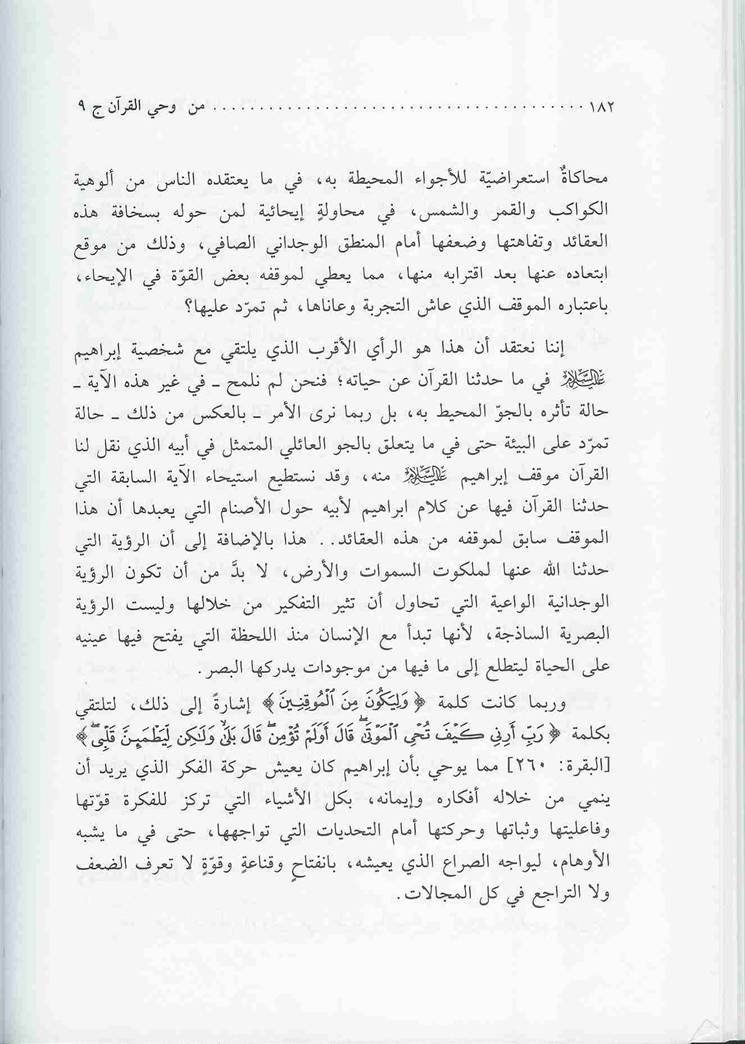 ١٨٢ ........................................ من وحي القرآن ج ٩
محاكاةٌ استعراضيّة للأجواء المحيطة به، في ما يعتقده الناس من ألوهية
الكواكب والقمر والشمس، في محاولةٍ إيحائية لمن حوله بسخافة هذه
العقائد وتفاهتها وضعفها أمام المنطق الوجداني الصافي، وذلك من موقع
ابتعاده عنها بعد اقترابه منها، مما يعطي لموقفه بعض القوّة في الإيحاء،
باعتباره الموقف الذي عاش التجربة وعاناها، ثم تمرّد عليها؟
إننا نعتقد أن هذا هو الرأي الأقرب الذي يلتقي مع شخصية إبراهيم
عليه السلام في ما حدثنا القرآن عن حياته؛ فنحن لم نلمح ـ في غير هذه الآية ـ
حالة تأثره بالجوّ المحيط به، بل ربما نرى الأمر ـ بالعكس من ذلك ـ حالة
تمرّد على البيئة حتى في ما يتعلق بالجو العائلي المتمثل في أبيه الذي نقل لنا
القرآن موقف إبراهيم عليه السلام منه، وقد نستطيع استيحاء الآية السابقة التي
حدثنا القرآن فيها عن كلام ابراهيم لأبيه حول الأصنام التي يعبدها أن هذا
الموقف سابق لموقفه من هذه العقائد.. هذا بالإضافة إلى أن الرؤية التي
حدثنا الله عنها لملكوت السموات والأرض، لا بدَّ من أن تكون الرؤية
الوجدانية الواعية التي تحاول أن تثير التفكير من خلالها وليست الرؤية
البصرية الساذجة، لأنها تبدأ مع الإنسان منذ اللحظة التي يفتح فيها عينيه
على الحياة ليتطلع إلى ما فيها من موجودات يدركها البصر.
وربما كانت كلمة ﴿ وَلِيَكُونَ مِنَ ٱلْمُوقِنِينَ ﴾ إشارةً إلى ذلك، لتلتقي
بكلمة ﴿ رَبِّ أَرِنِي كَيْفَ تُحْىِ ٱلْمَوْتَىٰۖ قَالَ أَوَلَمْ تُؤْمِنۖ قَالَ بَلَىٰ وَلَـٰكِن لِّيَطْمَئِنَّ قَلْبِىۖ ﴾
[البقرة: ٢٦٠] مما يوحي بأن إبراهيم كان يعيش حركة الفكر الذي يريد أن
ينمي من خلاله أفكاره وإيمانه، بكل الأشياء التي تركز للفكرة قوّتها
وفاعليتها وثباتها وحركتها أمام التحديات التي تواجهها، حتى في ما يشبه
الأوهام، ليواجه الصراع الذي يعيشه، بانفتاحٍ وقناعةٍ وقوّةٍ لا تعرف الضعف
ولا التراجع في كل المجالات.